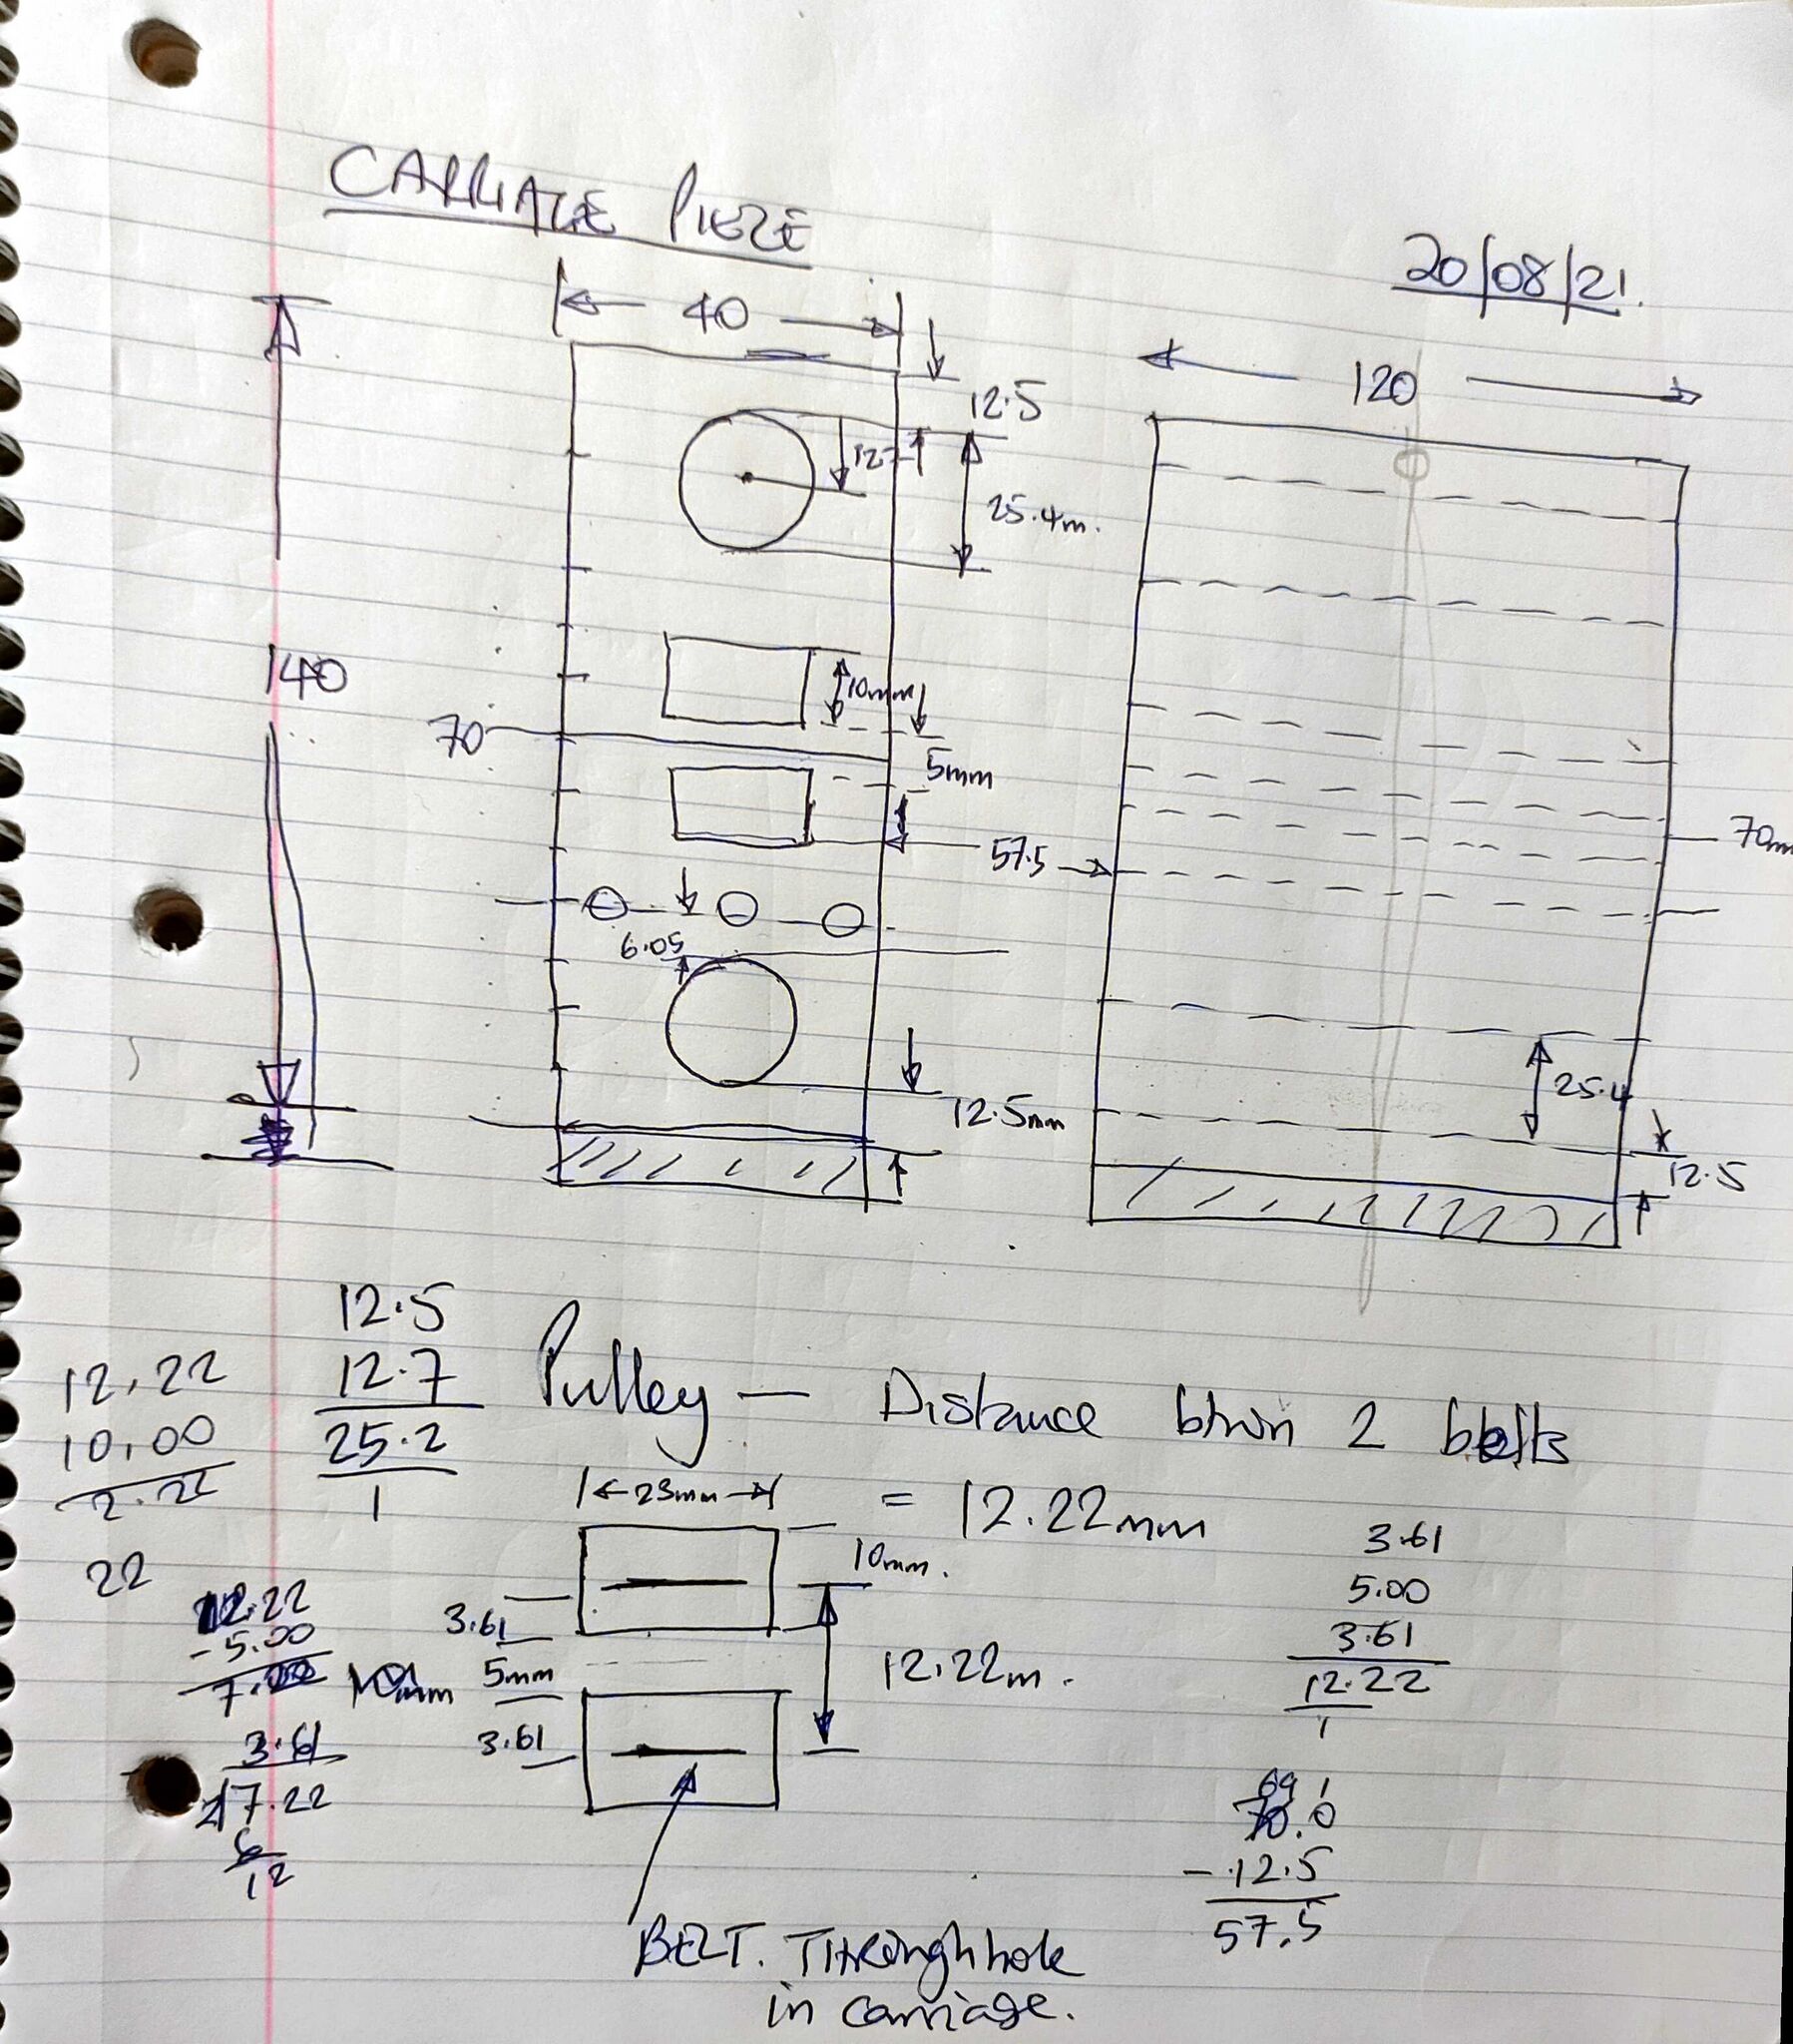 CARRIAGE PIEZE
20/08/21.
40
120
12.5
12.7
25.4m.
140
10mm
70
5mm
70m
57.5
6.05
25.4
12.5mm
12.5
12.5
12.7
25.2
1
12.22
10.00
2.22
Pulley — Distance btwn 2 belts
= 12.22mm
23mm
10mm.
22
12.22
-5.00
7.22
3.61
5mm
3.61
12.22m.
3.61
2/7.22
6
12
3.61
5.00
3.61
12.22
1
69 1
70.0
- 12.5
57.5
BELT. Through hole
in carriage.